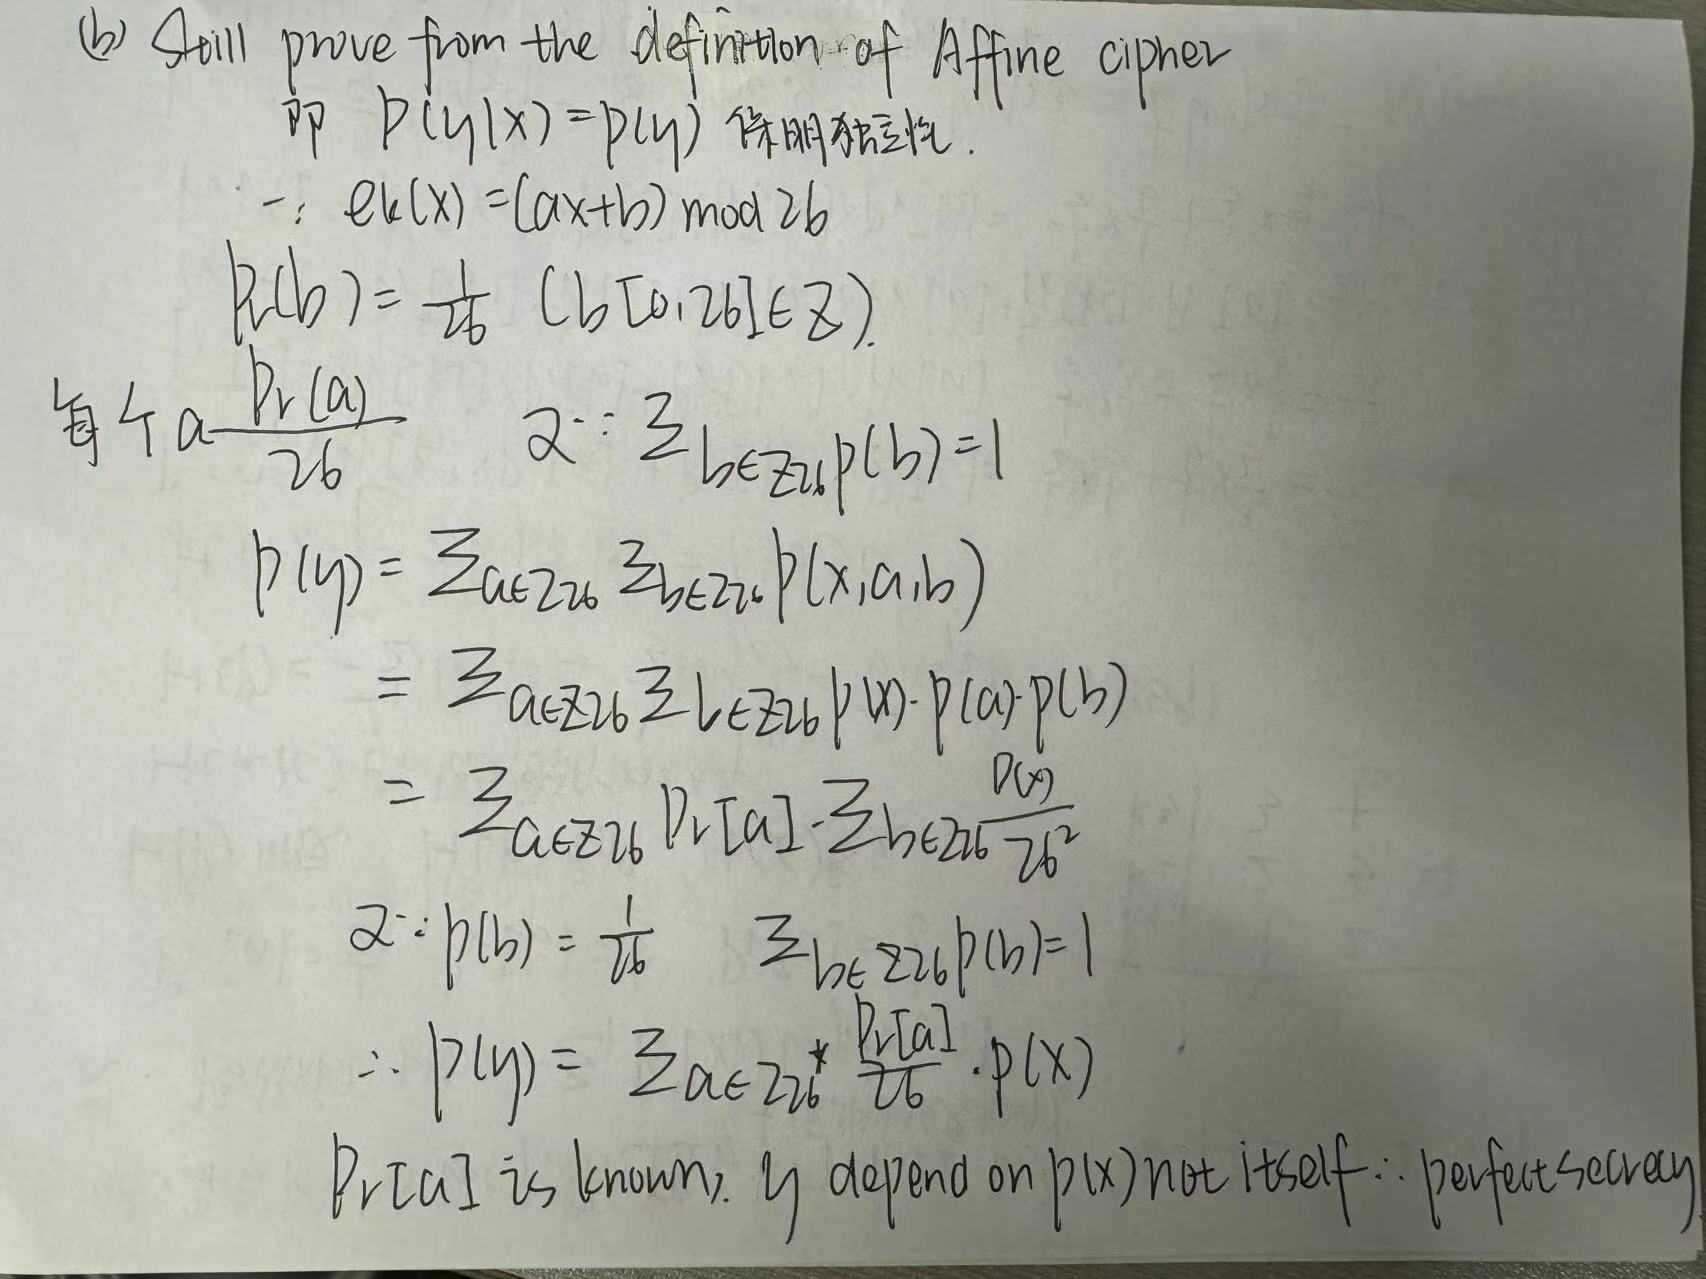 (b) Still prove from the definition of Affine cipher
即 P(y|x)=p(y) 保明独立性.
∵ ek(x)=(ax+b) mod 26
Pr(b)=1/26 (b[0,26]∈Z).
每个a Pr(a)/26 又∵ Σb∈Z26 p(b)=1
p(y)=Σa∈Z26 Σb∈Z26 p(x,a,b)
=Σa∈Z26 Σb∈Z26 p(x)·p(a)·p(b)
=Σa∈Z26 Pr[a]·Σb∈Z26 P(x)/26²
又∵ p(b)=1/26 Σb∈Z26 p(b)=1
∴ p(y)=Σa∈Z26* Pr[a]/26 ·p(x)
Pr[a] is known, y depend on p(x) not itself ∴ perfect secrecy